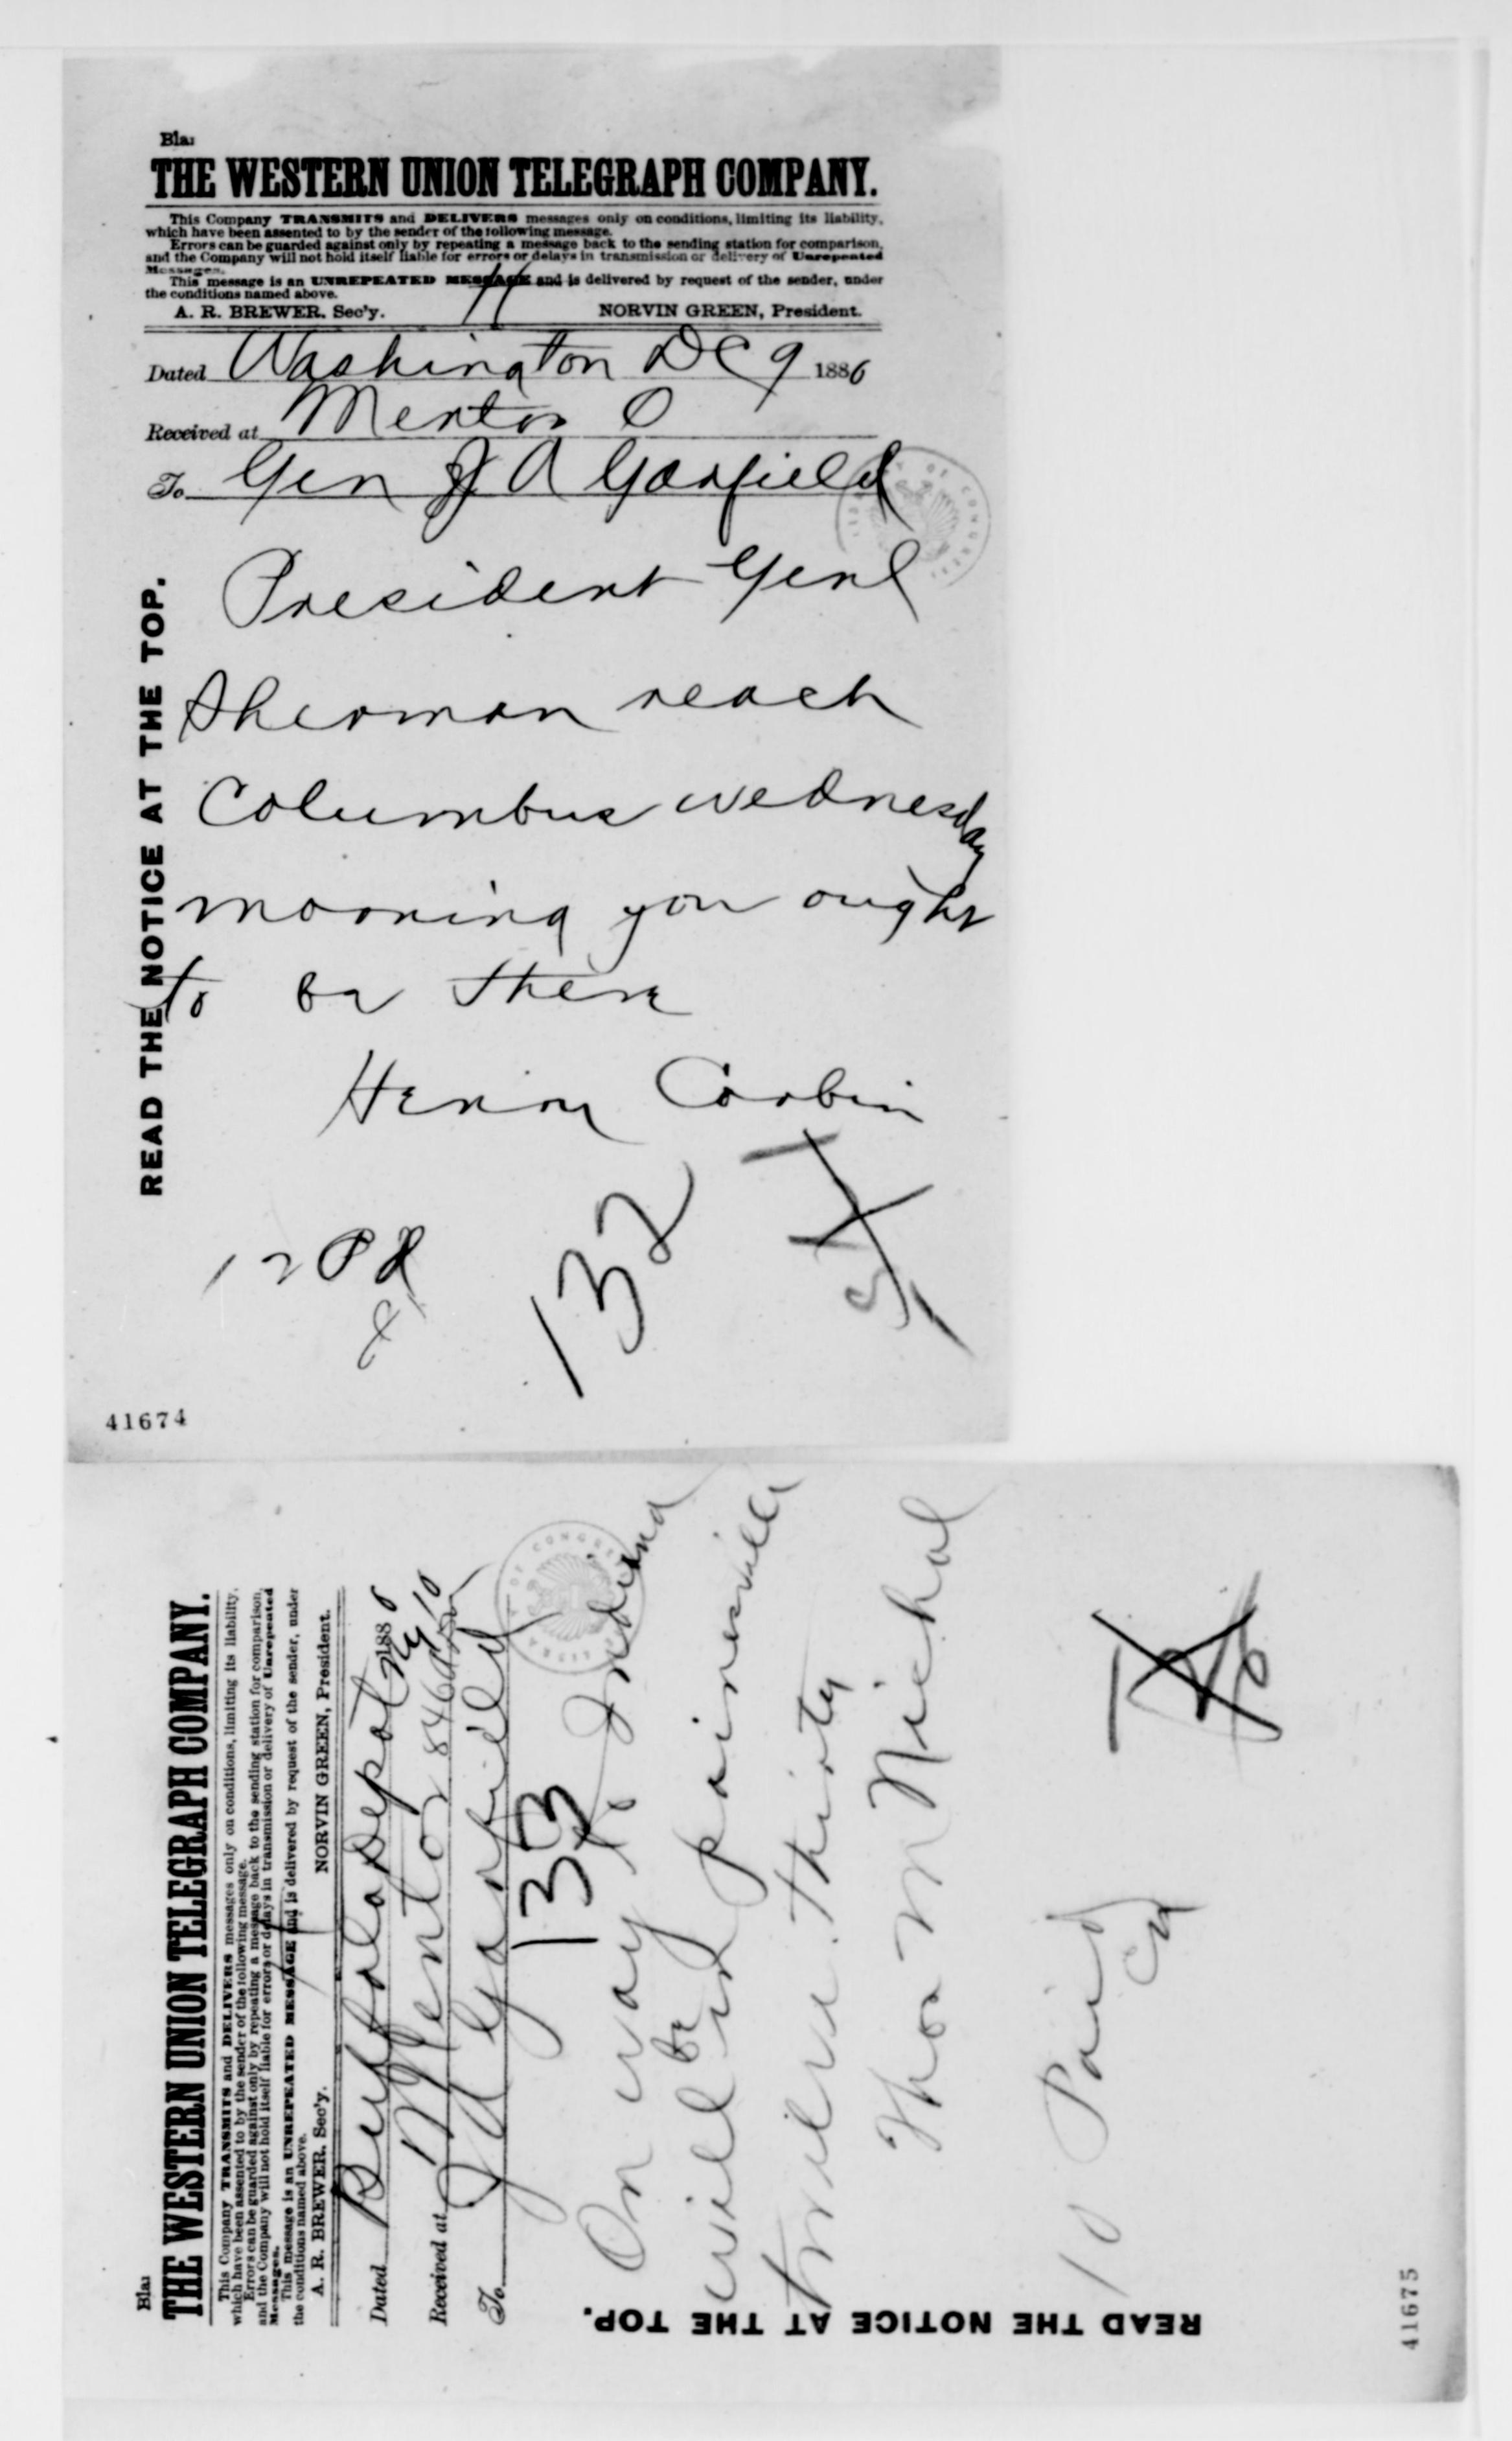 Bla:
THE WESTERN UNION TELEGRAPH COMPANY.
This Company TRANSMITS and DELIVERS messages only on conditions, limiting its liability,
which have been assented to by the sender of the following message.
Errors can be guarded against only by repeating a message back to the sending station for comparison,
and the Company will not hold itself liable for errors or delays in transmission or delivery of Unrepeated
Messages.
This message is an UNREPEATED MESSAGE and is delivered by request of the sender, under
the conditions named above.
A. R. BREWER, Sec'y. NORVIN GREEN, President.
Dated Washington DC 9 1880
Received at Mentor O
To Gen J A Garfield
President Genl
Sherman reach
Columbus wednesday
morning you ought
to be there
Henry Corbin
12 Pd
132
READ THE NOTICE AT THE TOP.
41674
Bla:
THE WESTERN UNION TELEGRAPH COMPANY.
This Company TRANSMITS and DELIVERS messages only on conditions, limiting its liability,
which have been assented to by the sender of the following message.
Errors can be guarded against only by repeating a message back to the sending station for comparison,
and the Company will not hold itself liable for errors or delays in transmission or delivery of Unrepeated
Messages.
This message is an UNREPEATED MESSAGE and is delivered by request of the sender, under
the conditions named above.
A. R. BREWER, Sec'y. NORVIN GREEN, President.
Dated Buffalo Depot Ny 10 1880
Received at Mentor 846 am
To J A Garfield
133
On way to Indiana
will be in painesville
twelve thirty
Thos M Nichol
10 Paid
READ THE NOTICE AT THE TOP.
41675